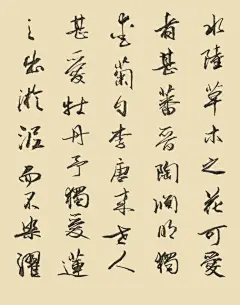 水陸草木之花可愛
者甚蕃晉陶淵明獨
愛菊自李唐来世人
甚愛牡丹予獨愛蓮
之出淤泥而不染濯